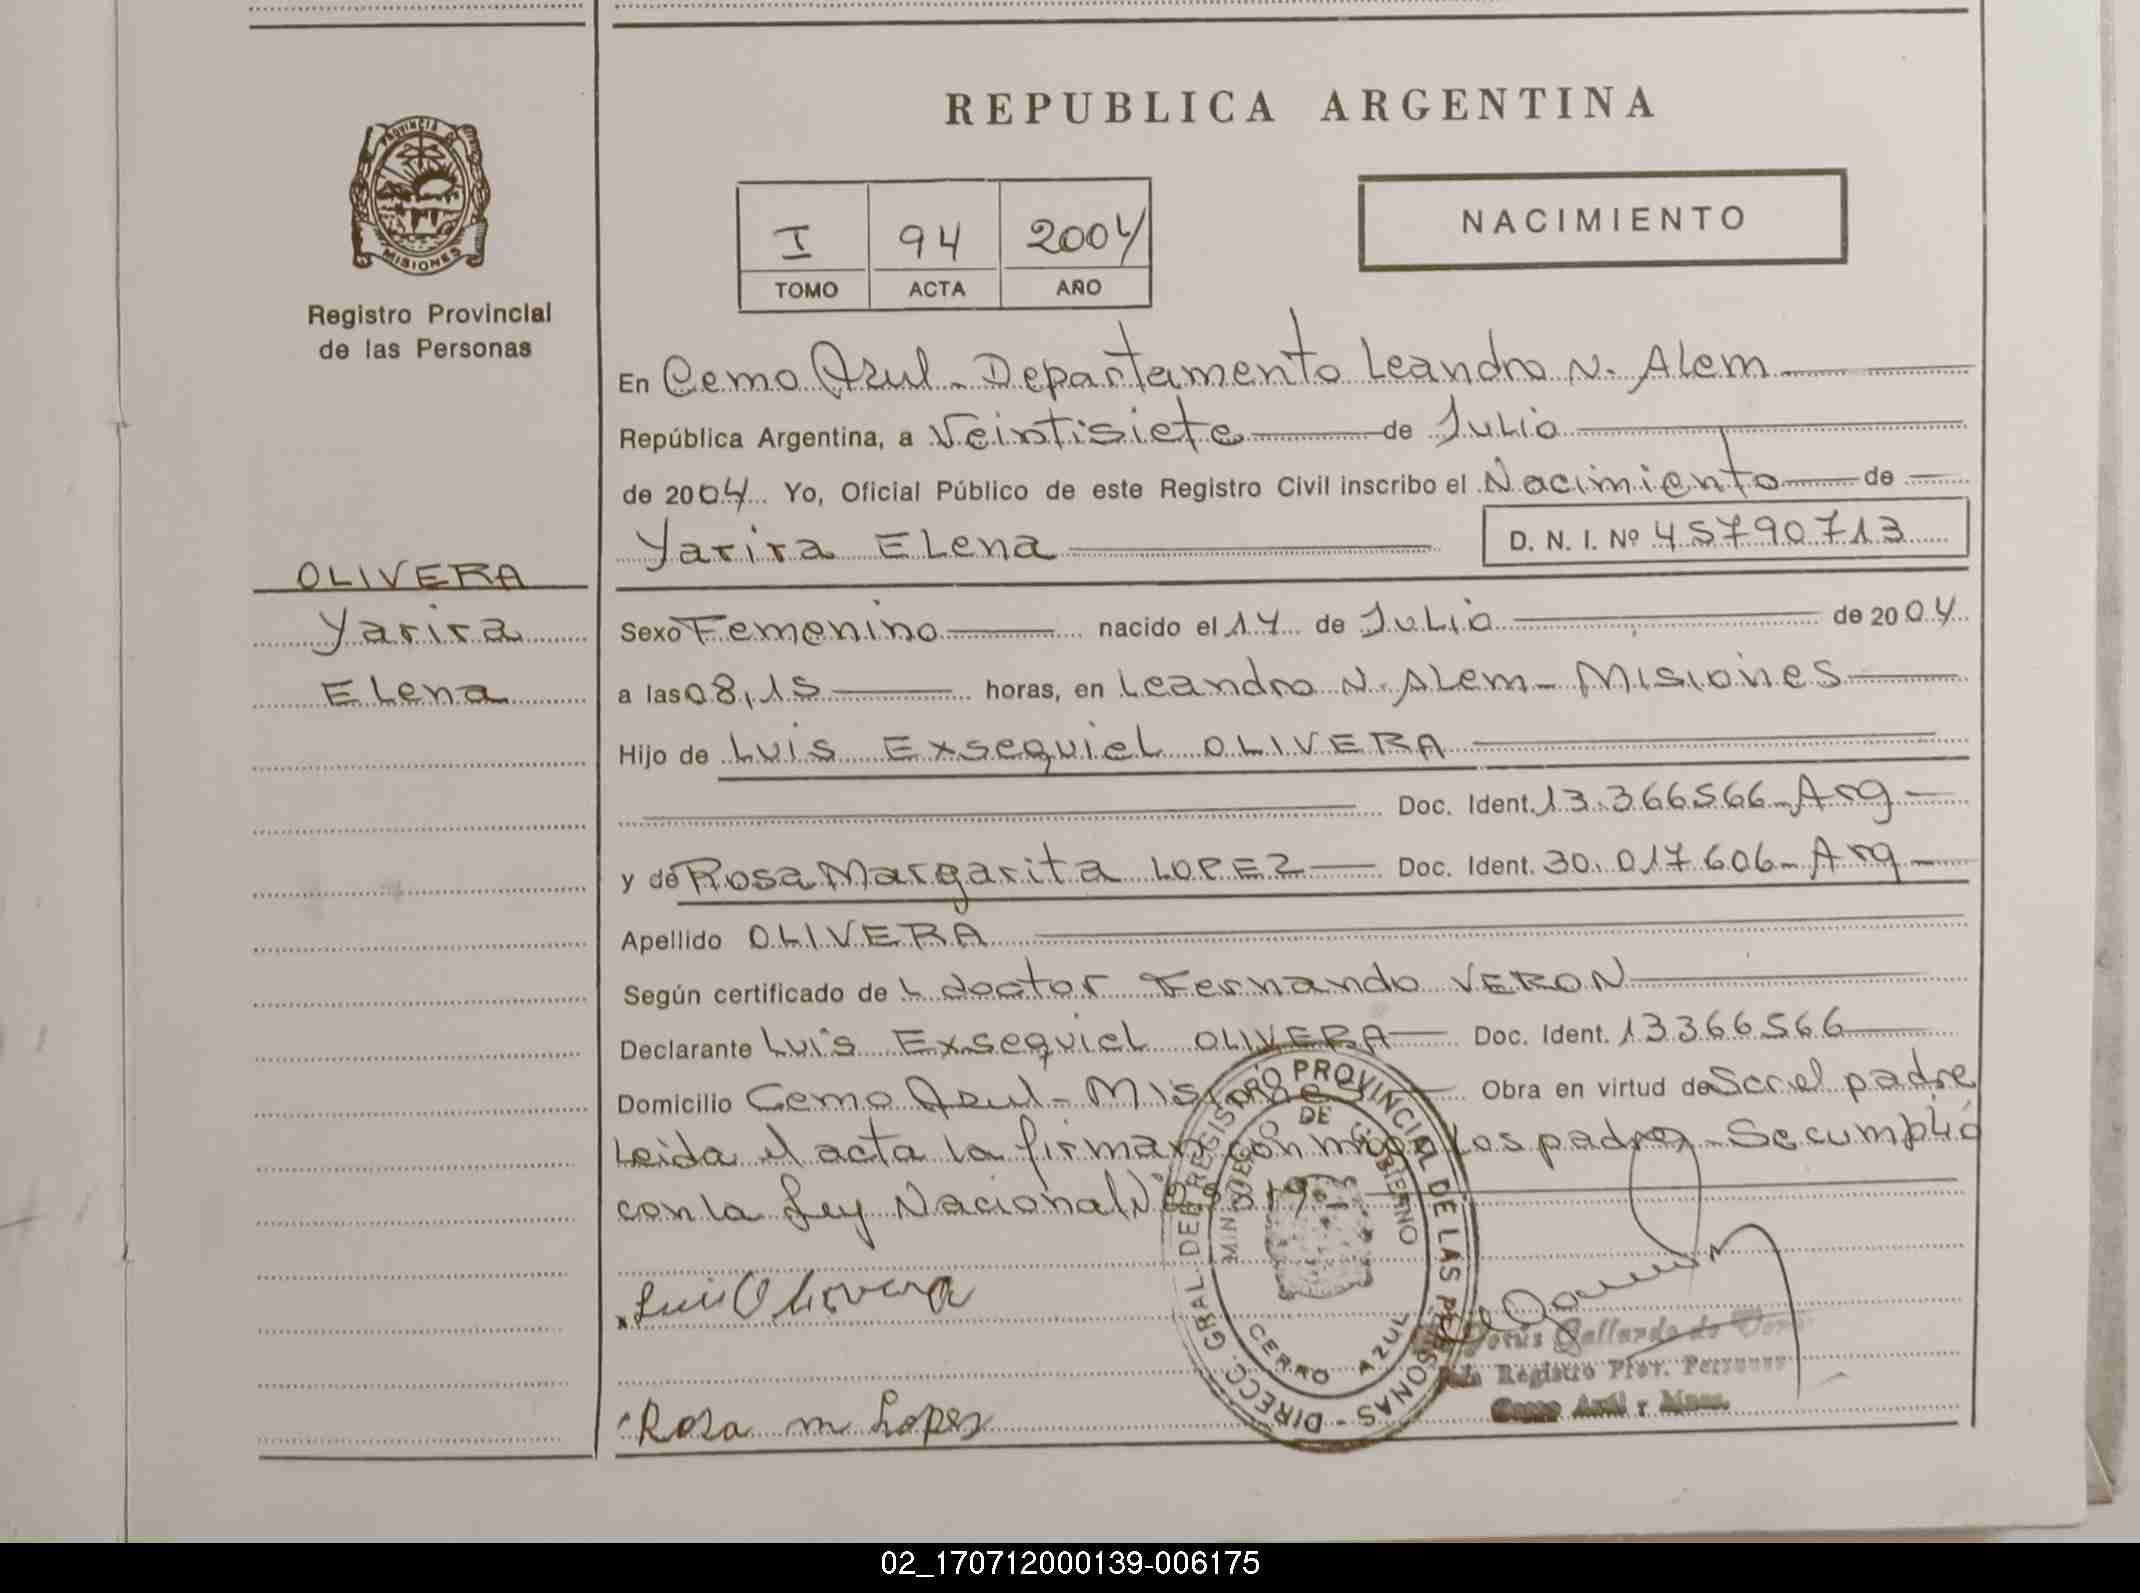 REPUBLICA ARGENTINA
PROVINCIA DE
MISIONES
Registro Provincial
de las Personas
I 94 2004
TOMO ACTA AÑO
NACIMIENTO
En Cerro Azul - Departamento Leandro N. Alem
República Argentina, a Veintisiete de Julio
de 2004 Yo, Oficial Público de este Registro Civil inscribo el Nacimiento de
Yarira Elena D. N. I. Nº 45790713
OLIVERA
Yarira
Elena
Sexo Femenino nacido el 14 de Julio de 2004
a las 08,15 horas, en Leandro N. Alem - Misiones
Hijo de Luis Exsequiel OLIVERA
Doc. Ident. 13.366566 - Arg
y de Rosa Margarita LOPEZ Doc. Ident. 30.017606 - Arg
Apellido OLIVERA
Según certificado de l doctor Fernando VERON
Declarante Luis Exsequiel OLIVERA Doc. Ident. 13366566
Domicilio Cerro Azul - Misiones Obra en virtud de Ser el padre
Leida el acta la firman conmigo los padres - Se cumplió
con la Ley Nacional Nº
Luis Olivera
Rosa m Lopez
DIRECC. GRAL. DEL REGISTRO PROVINCIAL DE LAS PERSONAS -
MINISTERIO DE GOBIERNO
CERRO AZUL
Gallardo de
Registro Prov. Personas
Cerro Azul - Mnes.
02_170712000139-006175